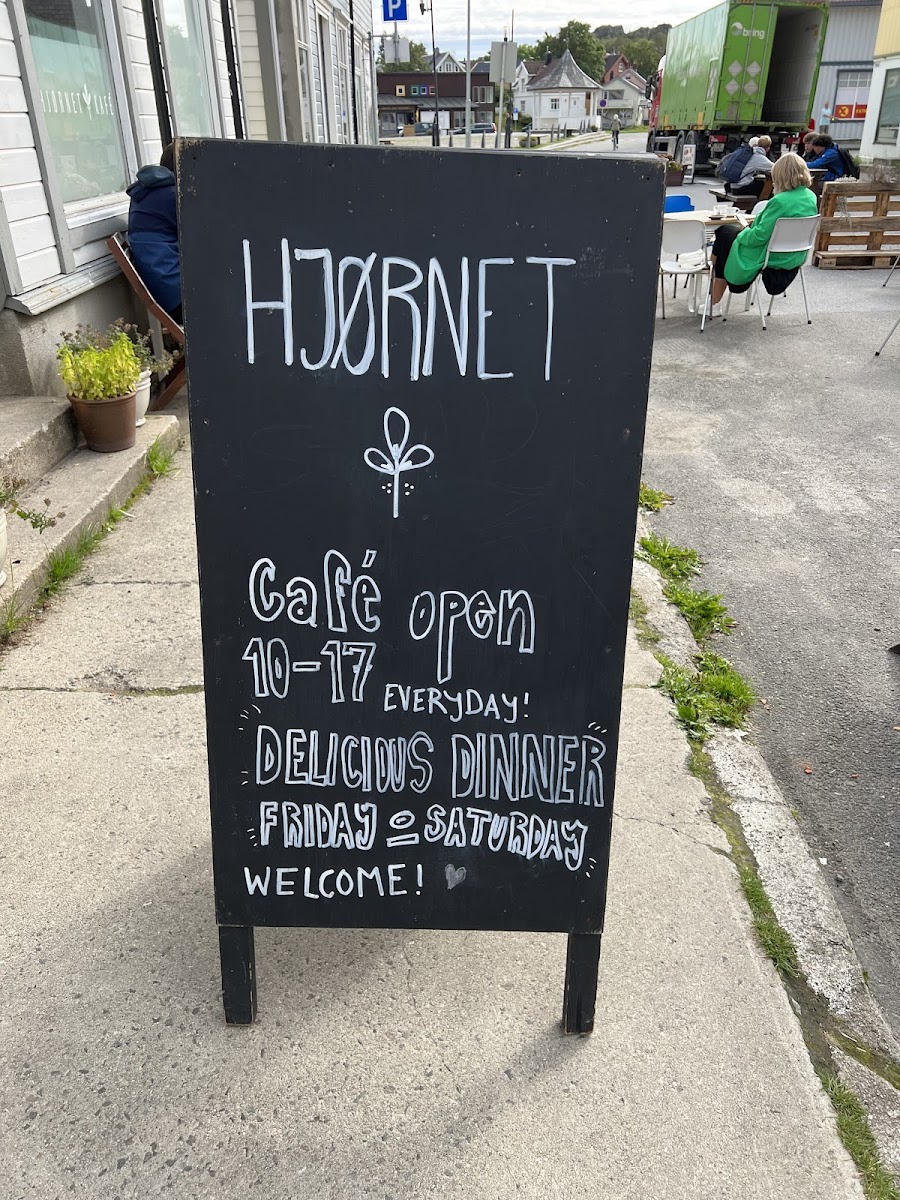 P
HJØRNET KAFÉ
bring
HJØRNET
Café open
10-17 EVERYDAY!
DELICIOUS DINNER
FRIDAY & SATURDAY
WELCOME!